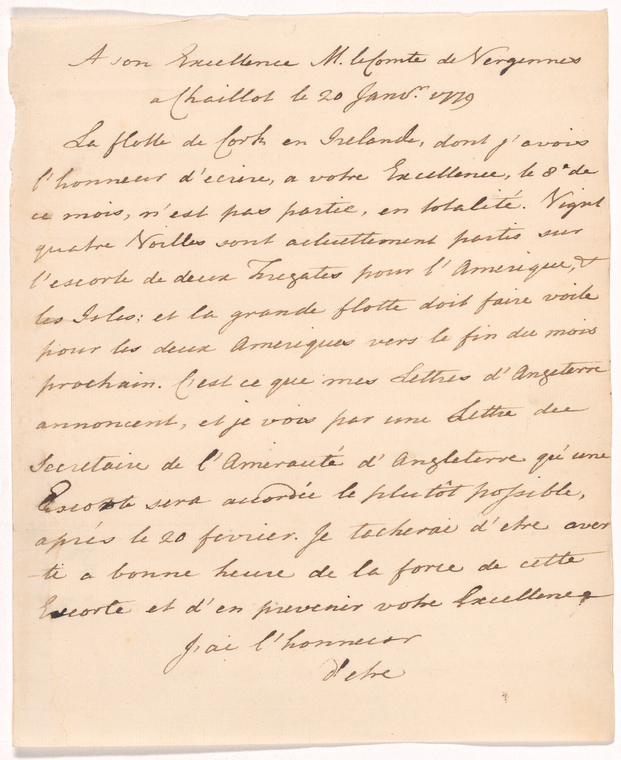 A son Excellence M. le Comte de Vergennes
a Chaillot le 20 Janvr. 1779
La flotte de Cork en Irelande, dont j'avois
l'honneur d'ecrire, a votre Excellence, le 8e de
ce mois, n'est pas partie, en totalité. Vignt
quatre Voilles sont actuettement partis sur
l'escorte de deux Fregates pour l'Amerique, &
les Isles: et la grande flotte doit faire voile
pour les deux Ameriques vers le fin du mois
prochain. C'est ce que mes Lettres d'Angeterre
annoncent, et je vois par une Lettre du
Secretaire de l'Amerauté d'Angleterre qu'une
Escorte sera accordée le plutôt possible,
aprés le 20 fevrier. Je tacherai d'etre aver
-ti a bonne heure de la force de cette
Escorte et d'en prevenir votre Excellence
J'ai l'honneur
d'etre